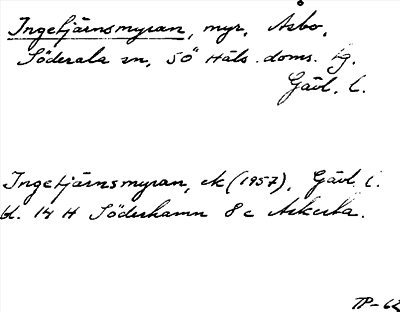 Ingetjärnsmyran, myr, Åsbo,
Söderala sn, SÖ Häls. doms. fg.
Gävl. l.
Ingetjärnsmyran, ek (1957), Gävl. l.
bl. 14 H Söderhamn 8 c Askesta.
TP-62